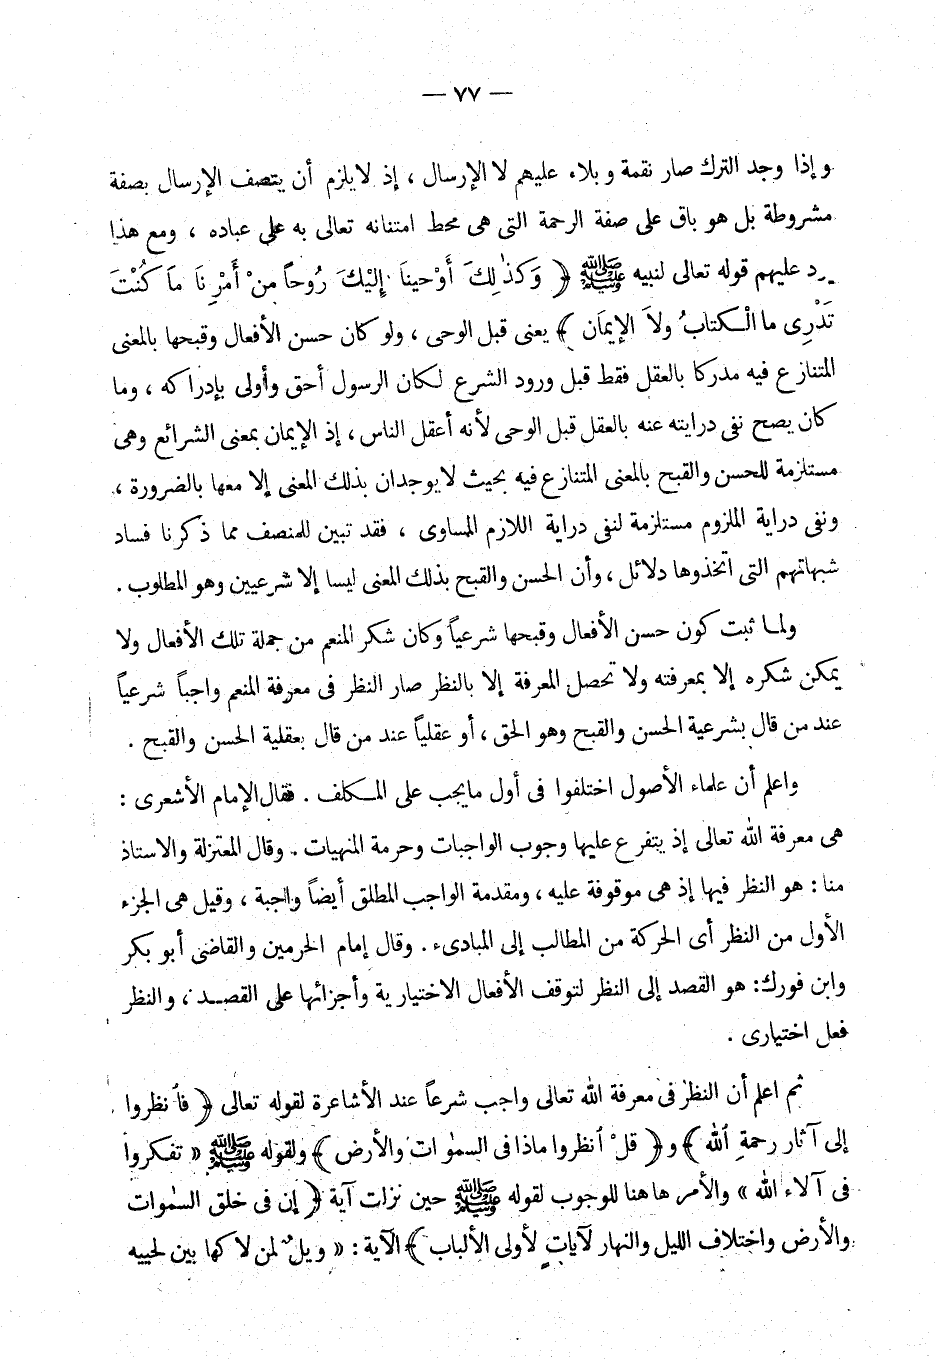 — ٧٧ —
وإذا وجد الترك صار نقمة وبلاء عليهم لا الإرسال ، إذ لا يلزم أن يتصف الإرسال بصفة
مشروطة بل هو باق على صفة الرحمة التى هى محط امتنانه تعالى به على عباده ، ومع هذا
يرد عليهم قوله تعالى لنبيه ﷺ ﴿ وَكَذٰلِكَ أَوْحينَا إِليْكَ رُوحاً مِنْ أَمْرِنَا مَا كُنْتَ
تَدْرِى ما الْـكتابُ ولاَ الإيمَان ﴾ يعنى قبل الوحى ، ولو كان حسن الأفعال وقبحها بالمعنى
المتنازع فيه مدركا بالعقل فقط قبل ورود الشرع لكان الرسول أحق وأولى بإدراكه ، وما
كان يصح نفى درايته عنه بالعقل قبل الوحى لأنه أعقل الناس ، إذ الإيمان بمعنى الشرائع وهى
مستلزمة للحسن والقبح بالمعنى المتنازع فيه بحيث لا يوجدان بذلك المعنى إلا معها بالضرورة ،
ونفى دراية الملزوم مستلزمة لنفى دراية اللازم المساوى ، فقد تبين للمنصف مما ذكرنا فساد
شبهاتهم التى اتخذوها دلائل ، وأن الحسن والقبح بذلك المعنى ليسا إلا شرعيين وهو المطلوب .
ولمـا ثبت كون حسن الأفعال وقبحها شرعياً وكان شكر المنعم من جملة تلك الأفعال ولا
يمكن شكره إلا بمعرفته ولا تحصل المعرفة إلا بالنظر صار النظر فى معرفة المنعم واجباً شرعياً
عند من قال بشرعية الحسن والقبح وهو الحق ، أو عقلياً عند من قال بعقلية الحسن والقبح .
واعلم أن علماء الأصول اختلفوا فى أول مايجب على المـكلف . فقال الإمام الأشعرى :
هى معرفة الله تعالى إذ يتفرع عليها وجوب الواجبات وحرمة المنهيات . وقال المعتزلة والاستاذ
منا : هو النظر فيها إذ هى موقوفة عليه ، ومقدمة الواجب المطلق أيضاً واجبة ، وقيل هى الجزء
الأول من النظر أى الحركة من المطالب إلى المبادىء . وقال إمام الحرمين والقاضى أبو بكر
وابن فورك : هو القصد إلى النظر لتوقف الأفعال الاختيارية وأجزائها على القصـد ، والنظر
فعل اختيارى .
ثم اعلم أن النظر فى معرفة الله تعالى واجب شرعاً عند الأشاعرة لقوله تعالى ﴿ فٱنظروا
إلى آثار رحمةِ ٱلله ﴾ و ﴿ قلْ ٱنظروا ماذا فى السمٰوات والأرض ﴾ ولقوله ﷺ « تفـكروا
فى آلاء الله » والأمر هاهنا للوجوب لقوله ﷺ حين نزلت آية ﴿ إن فى خلق السمٰوات
والأرض واختلاف الليل والنهار لآيات لأولى الألباب ﴾ الآية : « ويلٌ لمن لاكها بين لحييه